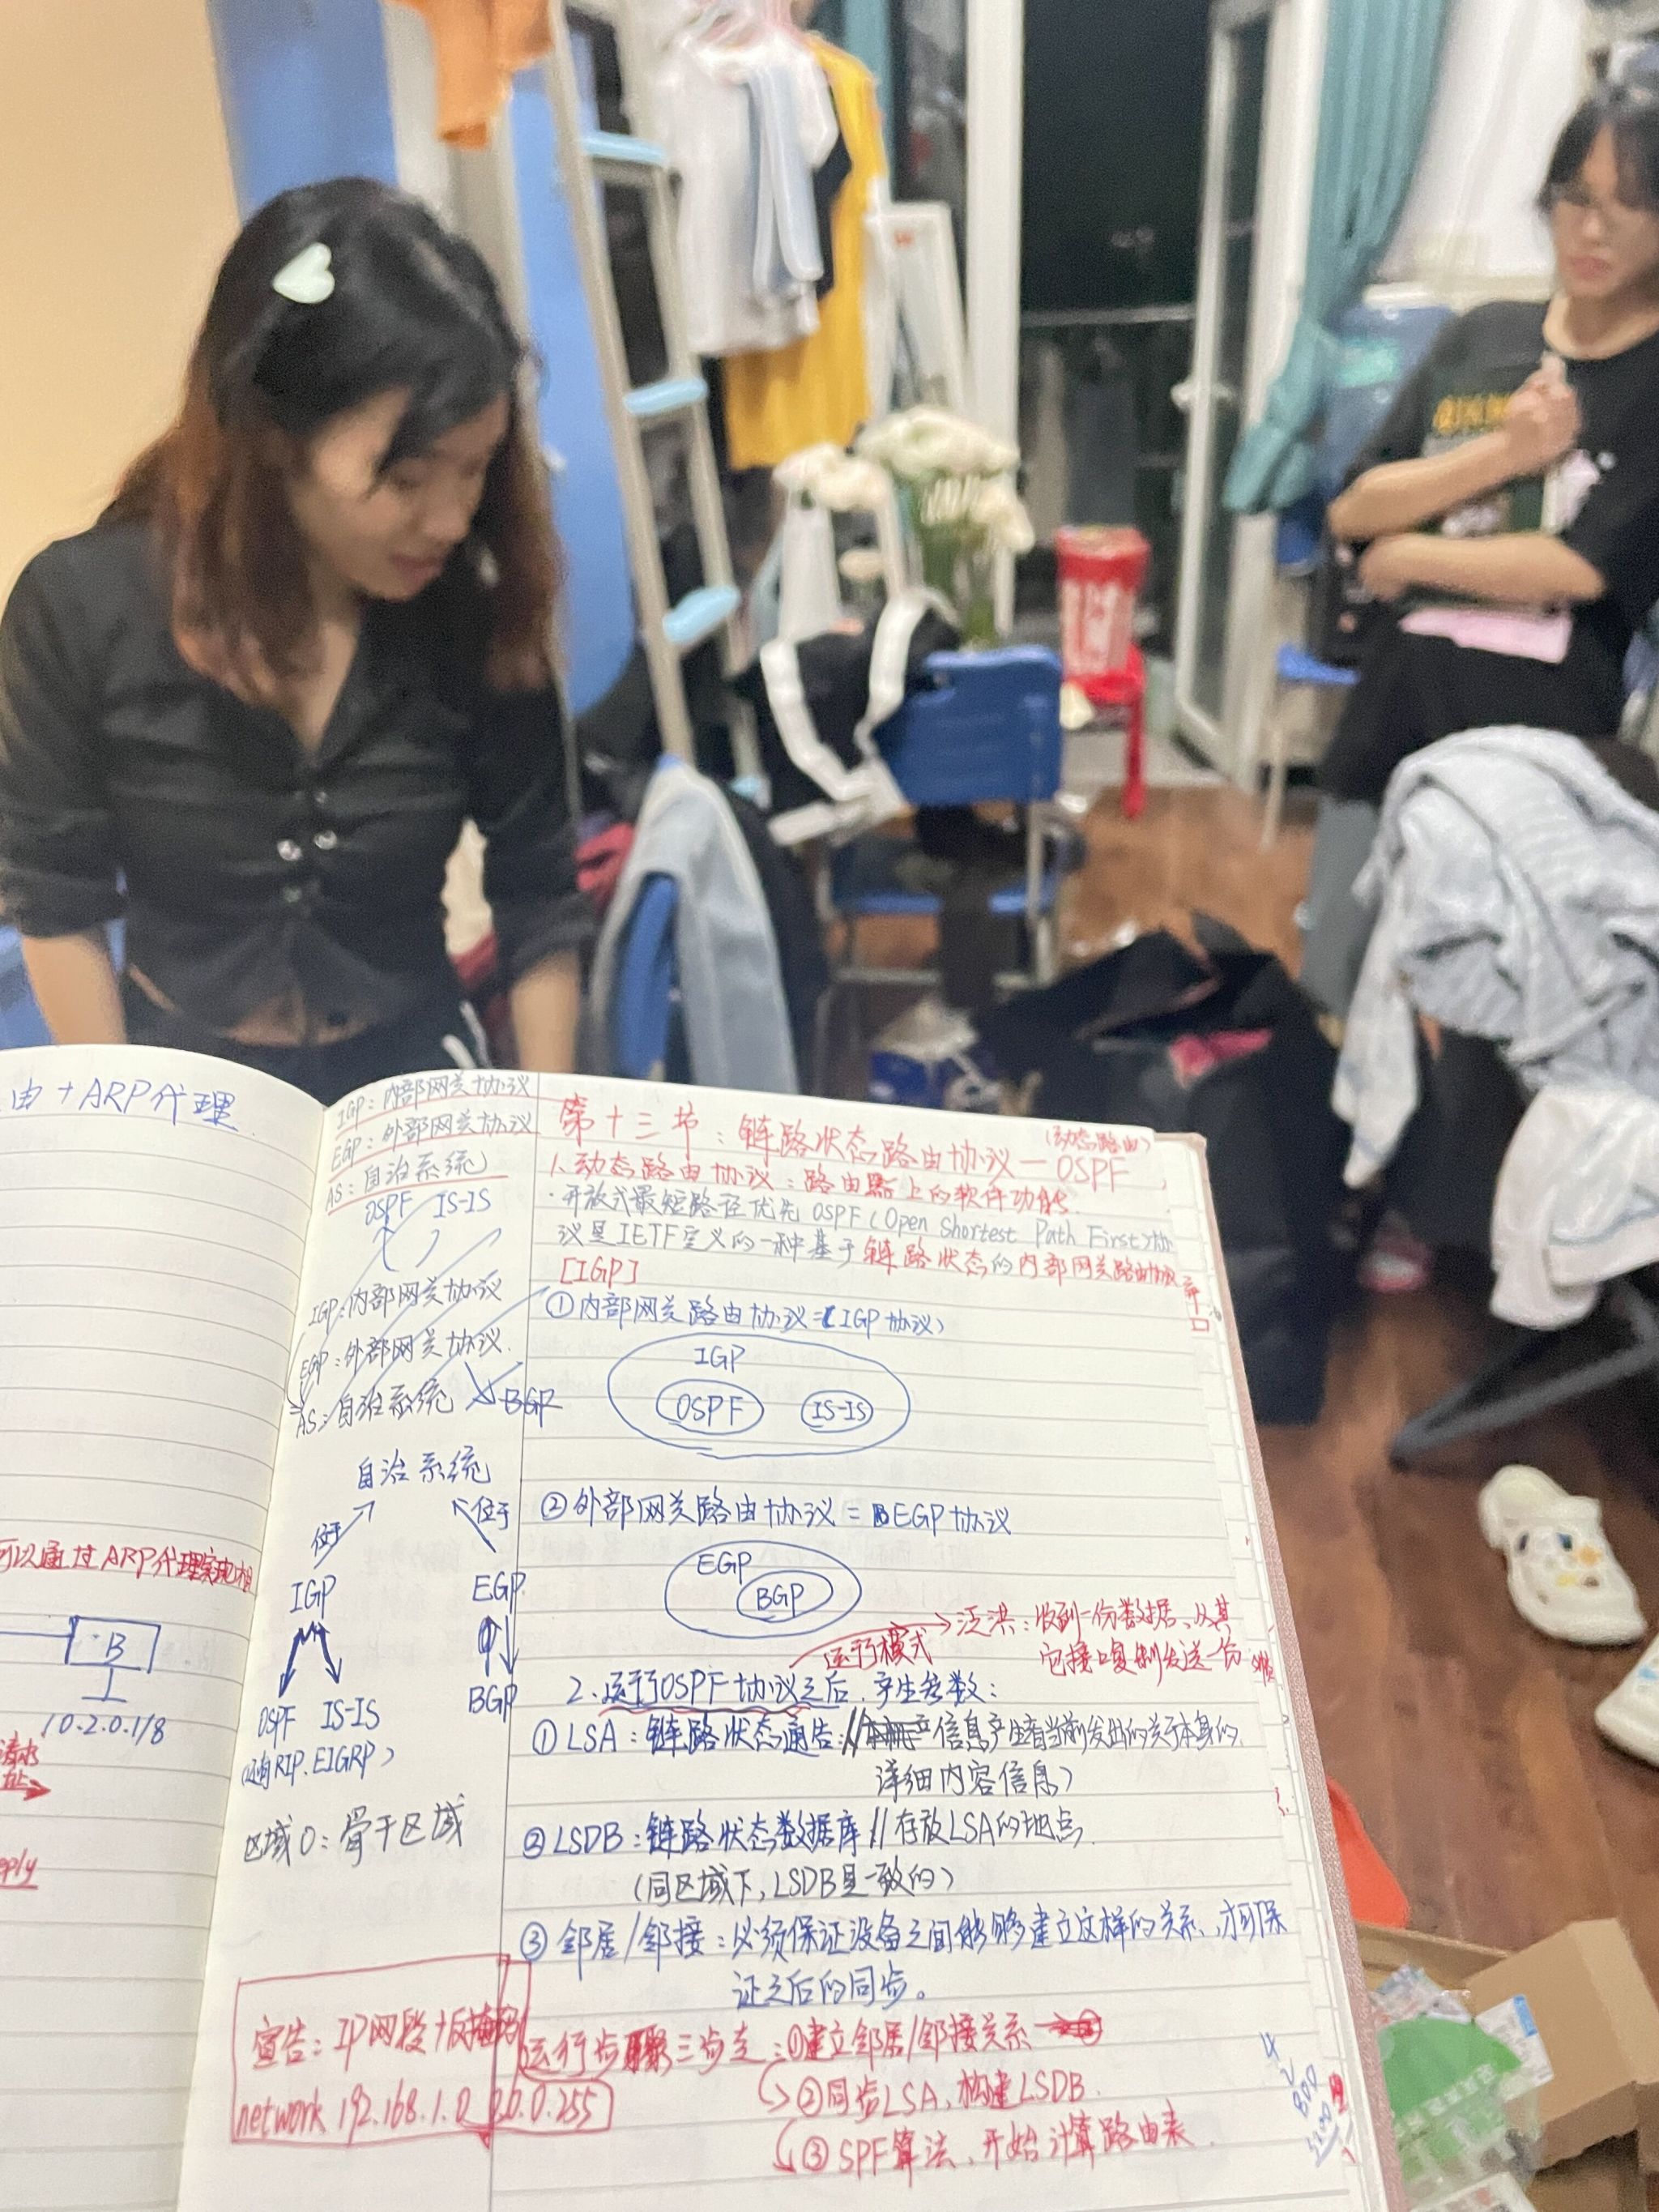 由+ARP代理
可以通过ARP代理实现相
B
10.2.0.1/8
IGP:内部网关协议
EGP:外部网关协议
AS:自治系统
OSPF IS-IS
IGP:内部网关协议
EGP:外部网关协议.
AS:自治系统 BGP
自治系统
位于 位于
IGP EGP
OSPF IS-IS BGP
(还有RIP.EIGRP)
区域0:骨干区域
宣告:IP网段+反掩码
network 192.168.1.0 0.0.0.255
第十三节:链路状态路由协议—OSPF
(动态路由)
1.动态路由协议:路由器上的软件功能.
·开放式最短路径优先OSPF(Open Shortest Path First)协
议是IETF定义的一种基于链路状态的内部网关路由协议
[IGP]
①内部网关路由协议=(IGP协议)
IGP
OSPF IS-IS
②外部网关路由协议=EGP协议
EGP
BGP
运行模式→泛洪:收到一份数据、从其
它接口复制发送一份
2.运行OSPF协议之后,产生参数:
①LSA:链路状态通告://信息产生者当前发出的关于本身的
详细内容信息)
②LSDB:链路状态数据库//存放LSA的地点.
(同区域下,LSDB是一致的)
③邻居/邻接:必须保证设备之间能够建立这样的关系,才可保
证之后的同步。
运行步骤三步走:①建立邻居/邻接关系
②同步LSA,构建LSDB.
③SPF算法、开始计算路由表.